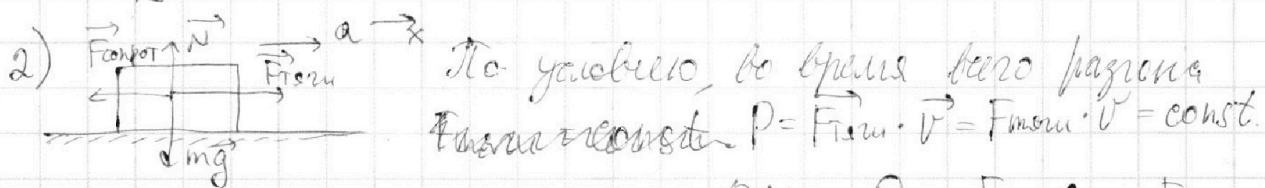 2) Fсопрот N a x
Fтяги По условию, во время всего разгона
P = Fтяги · V = Fтяги · V = const.
mg